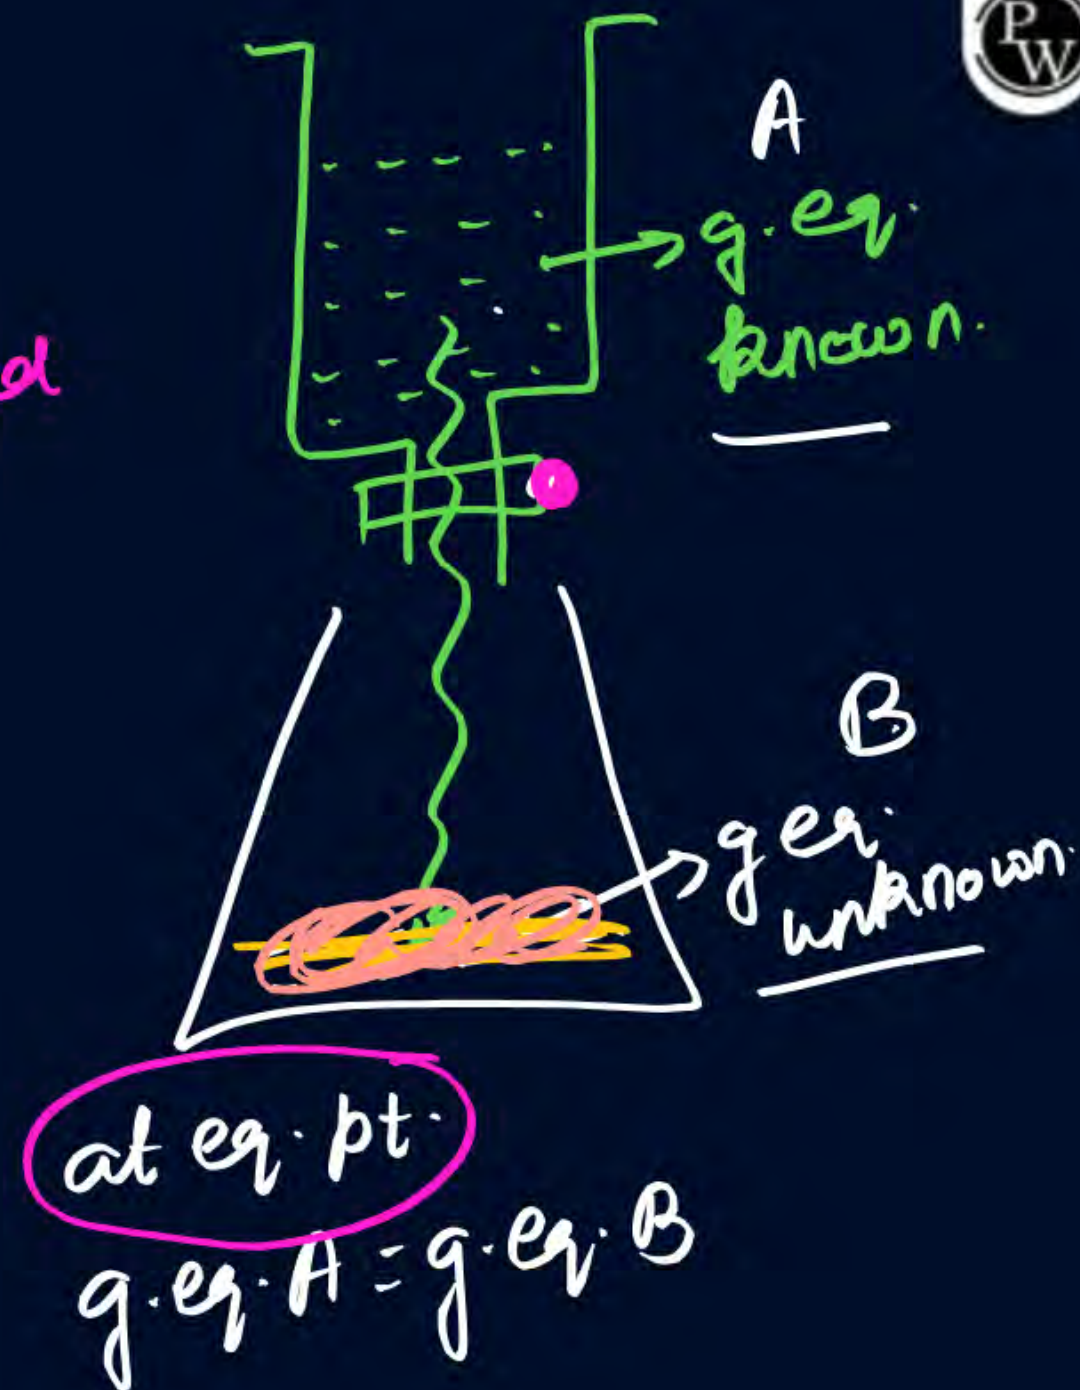 PW
A
g.eq.
known.
d
B
g eq.
unknown.
at eq. pt.
g.eq. A = g.eq. B